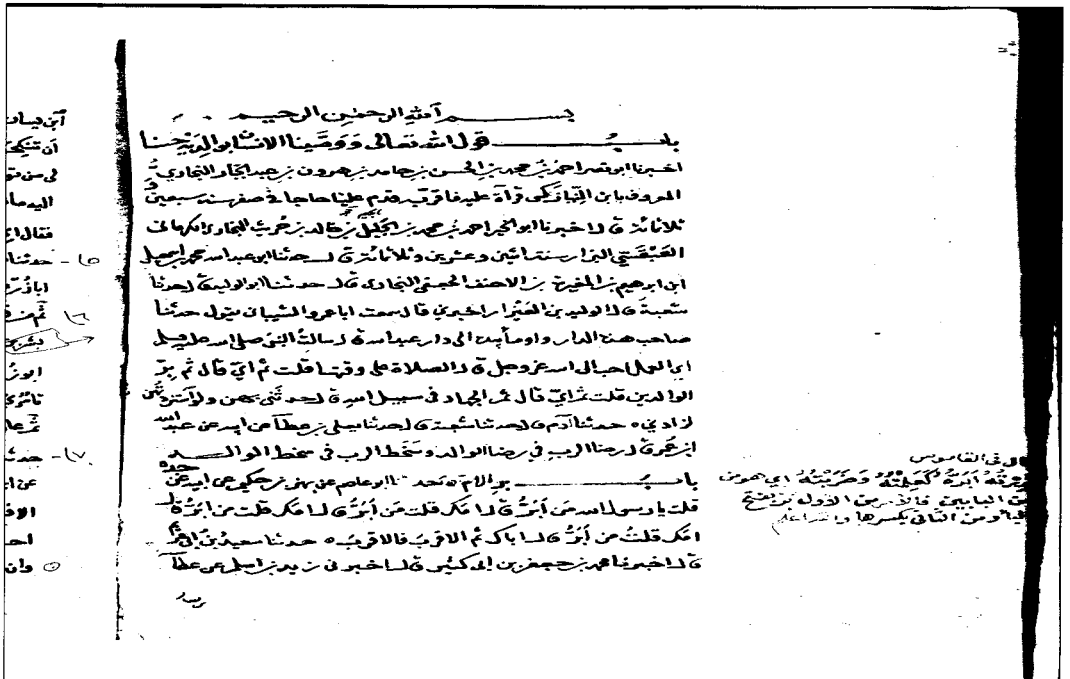 بسم الله الرحمن الرحيم
باب قول الله تعالى ووصينا الانسان بوالديه حسنا
اخبرنا ابو نصر احمد بن محمد بن الحسن بن حامد بن هرون بن عبد الجبار البخاري
المعروف بابن النيازكي قرأة عليه فاقر به قدم علينا حاجا في صفر سنة سبعين
وثلاثمائة قال اخبرنا ابو الخير احمد بن محمد بن الجليل بن خالد بن حريث البخاري الكرماني
العبقسي البزار سنة اثنين وعشرين وثلاثمائة قال حدثنا ابو عبد الله محمد بن اسمعيل
ابن ابرهيم بن المغيرة بن الاحنف الجعفي البخاري قال حدثنا ابو الوليد قال حدثنا
شعبة قال الوليد بن العيزار اخبرني قال سمعت ابا عمرو الشيباني يقول حدثنا
صاحب هذه الدار واومأ بيده الى دار عبد الله قال سالت النبي صلى الله عليه وسلم
اي العمل احب الى الله عز وجل قال الصلاة على وقتها قلت ثم اي قال ثم بر
الوالدين قلت ثم اي قال ثم الجهاد في سبيل الله قال حدثني بهن ولو استزدته
لزادني ه حدثنا آدم قال حدثنا شعبة قال حدثنا يعلى بن عطآ عن ابيه عن عبد الله
ابن عمرو قال رضا الرب في رضا الوالد وسخط الرب في سخط الوالد
باب بر الام ه حدثنا ابو عاصم عن بهز بن حكيم عن ابيه عن جده
قلت يا رسول الله من أبر قال امك قلت من أبر قال امك قلت من ابر قال
امك قلت من أبر قال اباك ثم الاقرب فالاقرب ه حدثنا سعيد بن ابي مريم
قال اخبرنا محمد بن جعفر بن ابي كثير قال اخبرني زيد بن اسلم عن عطآ
قال في القاموس
أبره كعلمته وضربته اي هو من
البابين فالأمر من الأول بر بفتح
الباء ومن الثاني بكسرها والله اعلم
ابن يسار
أن تنكح
فقال
١٥ - حدثنا
١٦
ابو
١٧ - حدثنا
عن ا
احد
وان